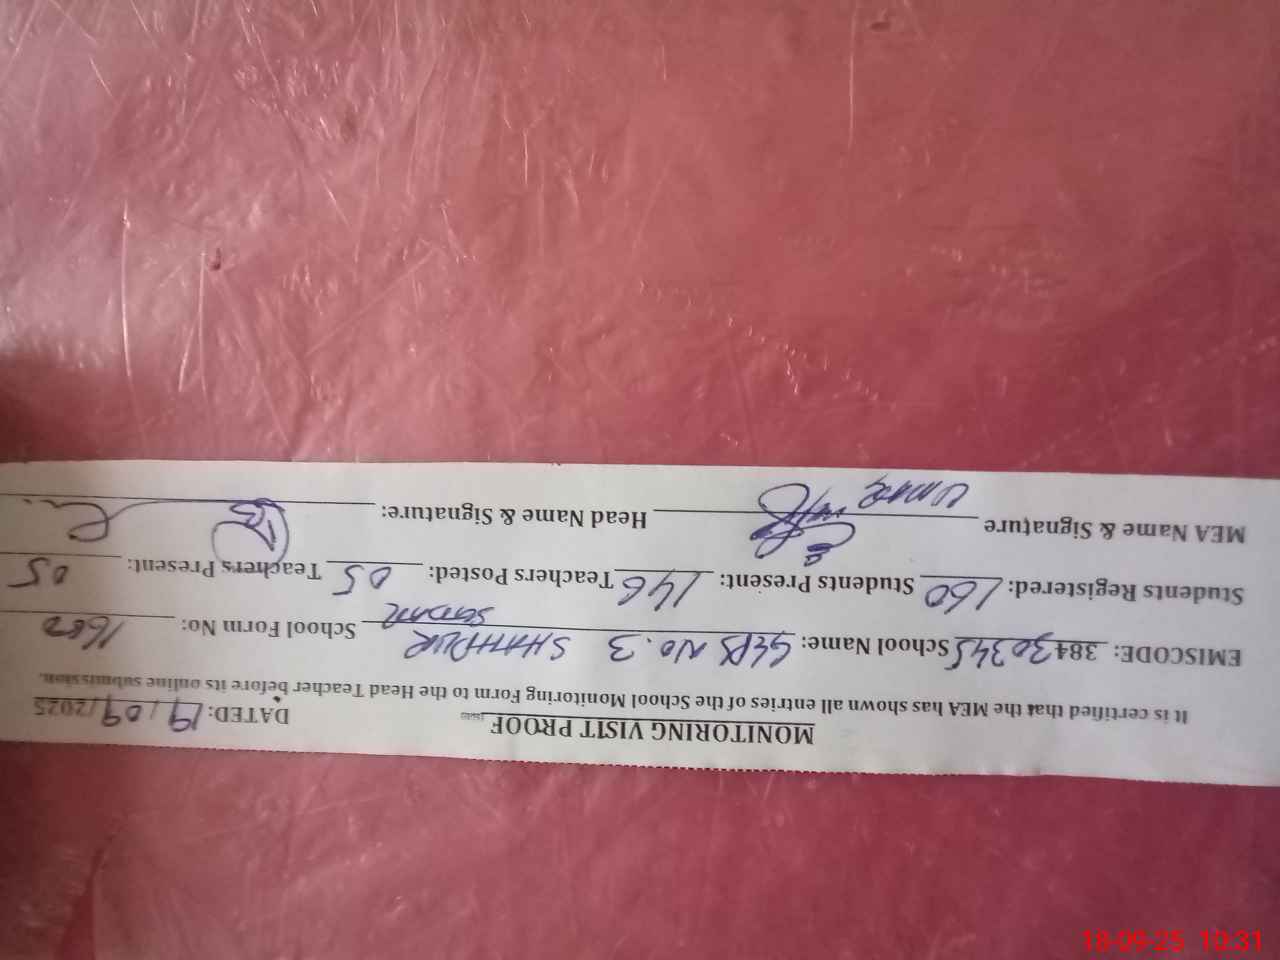 MONITORING VISIT PROOF
DATED: 19/09/2025
It is certified that the MEA has shown all entries of the School Monitoring Form to the Head Teacher before its online submission.
EMISCODE: 38430345 School Name: GGPS No. 3 SHAHPUR School Form No: 1602
SADDAR
Students Registered: 160 Students Present: 146 Teachers Posted: 05 Teachers Present: 05
MEA Name & Signature UMAR Head Name & Signature:
18-09-25 10:31